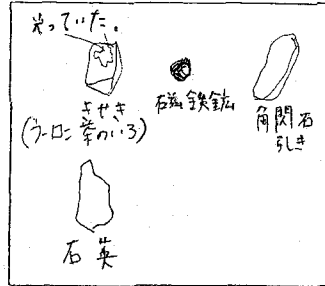 光っていた。
きせき
(ウーロン茶のいろ)
磁鉄鉱
角関石
らしき
石英